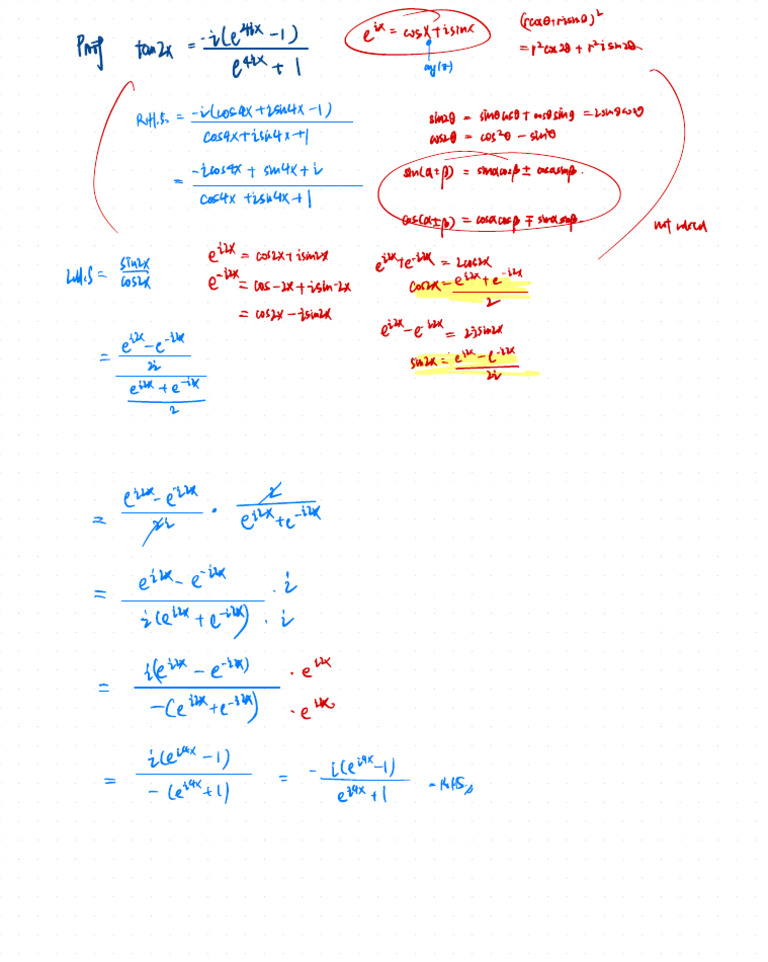 Proof tan2x = -i(e^{4ix} - 1) / e^{4ix} + 1
e^{ix} = cosx + isinx
arg(z)
(rcosθ+risinθ)^2
= r^2cos2θ + r^2 i sin2θ
R.H.S. = -i(cos4x + isin4x - 1) / cos4x + isin4x + 1
= -icos4x + sin4x + i / cos4x + isin4x + 1
sin2θ = sinθcosθ + cosθsinθ = 2sinθcosθ
cos2θ = cos^2θ - sin^2θ
sin(α±β) = sinαcosβ ± cosαsinβ.
cos(α±β) = cosαcosβ ∓ sinαsinβ.
not used
L.H.S = sin2x / cos2x
e^{i2x} = cos2x + isin2x
e^{-i2x} = cos-2x + isin-2x
= cos2x - isin2x
e^{i2x} + e^{-i2x} = 2cos2x
cos2x = e^{i2x} + e^{-i2x} / 2
e^{i2x} - e^{-i2x} = 2isin2x
sin2x = e^{i2x} - e^{-i2x} / 2i
= e^{i2x} - e^{-i2x} / 2i / e^{i2x} + e^{-i2x} / 2
= e^{i2x} - e^{-i2x} / 2i · 2 / e^{i2x} + e^{-i2x}
= e^{i2x} - e^{-i2x} / i(e^{i2x} + e^{-i2x}) · i · i
= i(e^{i2x} - e^{-i2x}) / -(e^{i2x} + e^{-i2x}) · e^{i2x} · e^{i2x}
= i(e^{i4x} - 1) / -(e^{i4x} + 1) = - i(e^{i4x} - 1) / e^{i4x} + 1 = RHS